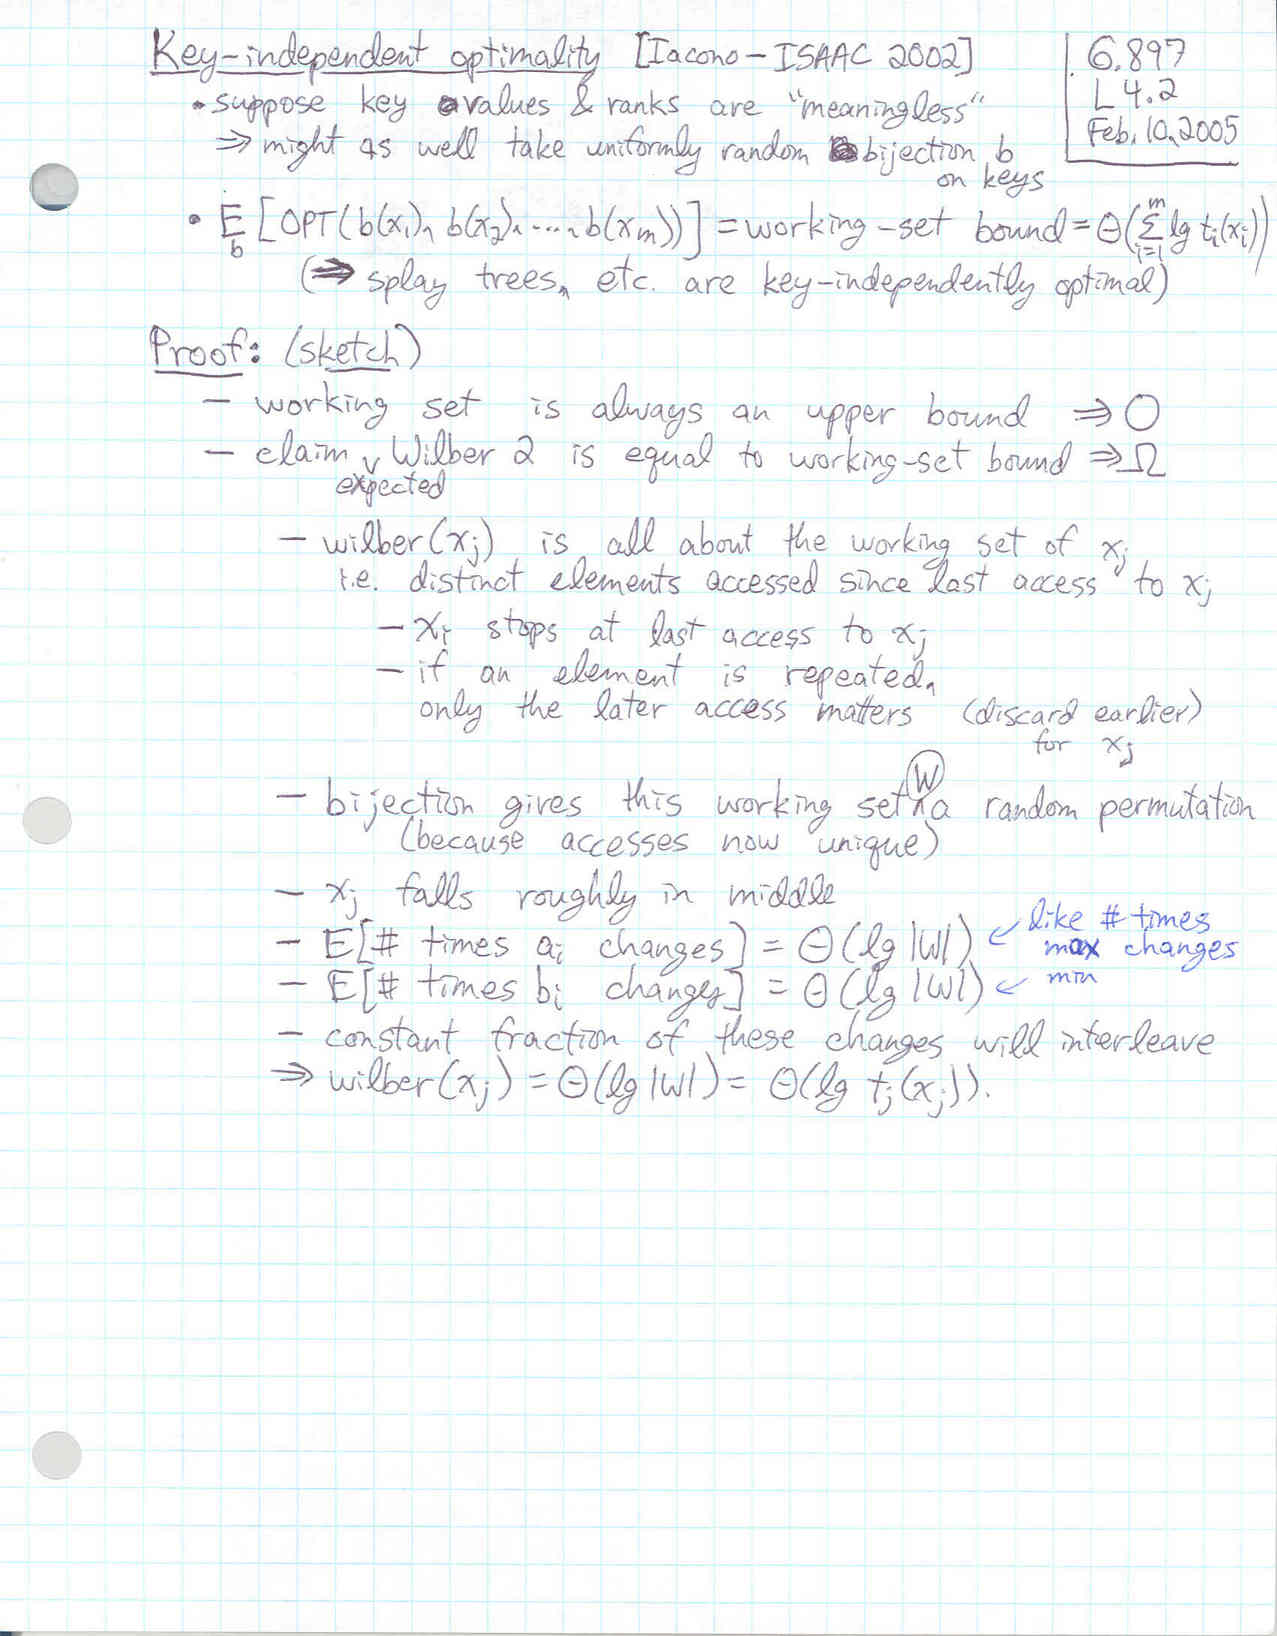 Key-independent optimality [Iacono-ISAAC 2002]
6.897
L 4.2
Feb. 10, 2005
• suppose key values & ranks are "meaningless"
⇒ might as well take uniformly random bijection b
on keys
• E_b [OPT(b(x₁), b(x₂), ..., b(xₘ))] = working-set bound = Θ(∑_{i=1}^{m} lg tᵢ(xᵢ))
(⇒ splay trees, etc. are key-independently optimal)
Proof: (sketch)
- working set is always an upper bound ⇒ O
- claim ∨ Wilber 2 is equal to working-set bound ⇒ Ω
expected
- wilber(xⱼ) is all about the working set of xⱼ
i.e. distinct elements accessed since last access to xⱼ
- xᵢ stops at last access to xⱼ
- if an element is repeated,
only the later access matters (discard earlier)
for xⱼ
W
- bijection gives this working set ∧ a random permutation
(because accesses now unique)
- xⱼ falls roughly in middle
- E[# times aᵢ changes] = Θ(lg |W|) ← like # times
max changes
- E[# times bᵢ changes] = Θ(lg |W|) ← min
- constant fraction of these changes will interleave
⇒ wilber(xⱼ) = Θ(lg |W|) = Θ(lg tⱼ(xⱼ)).